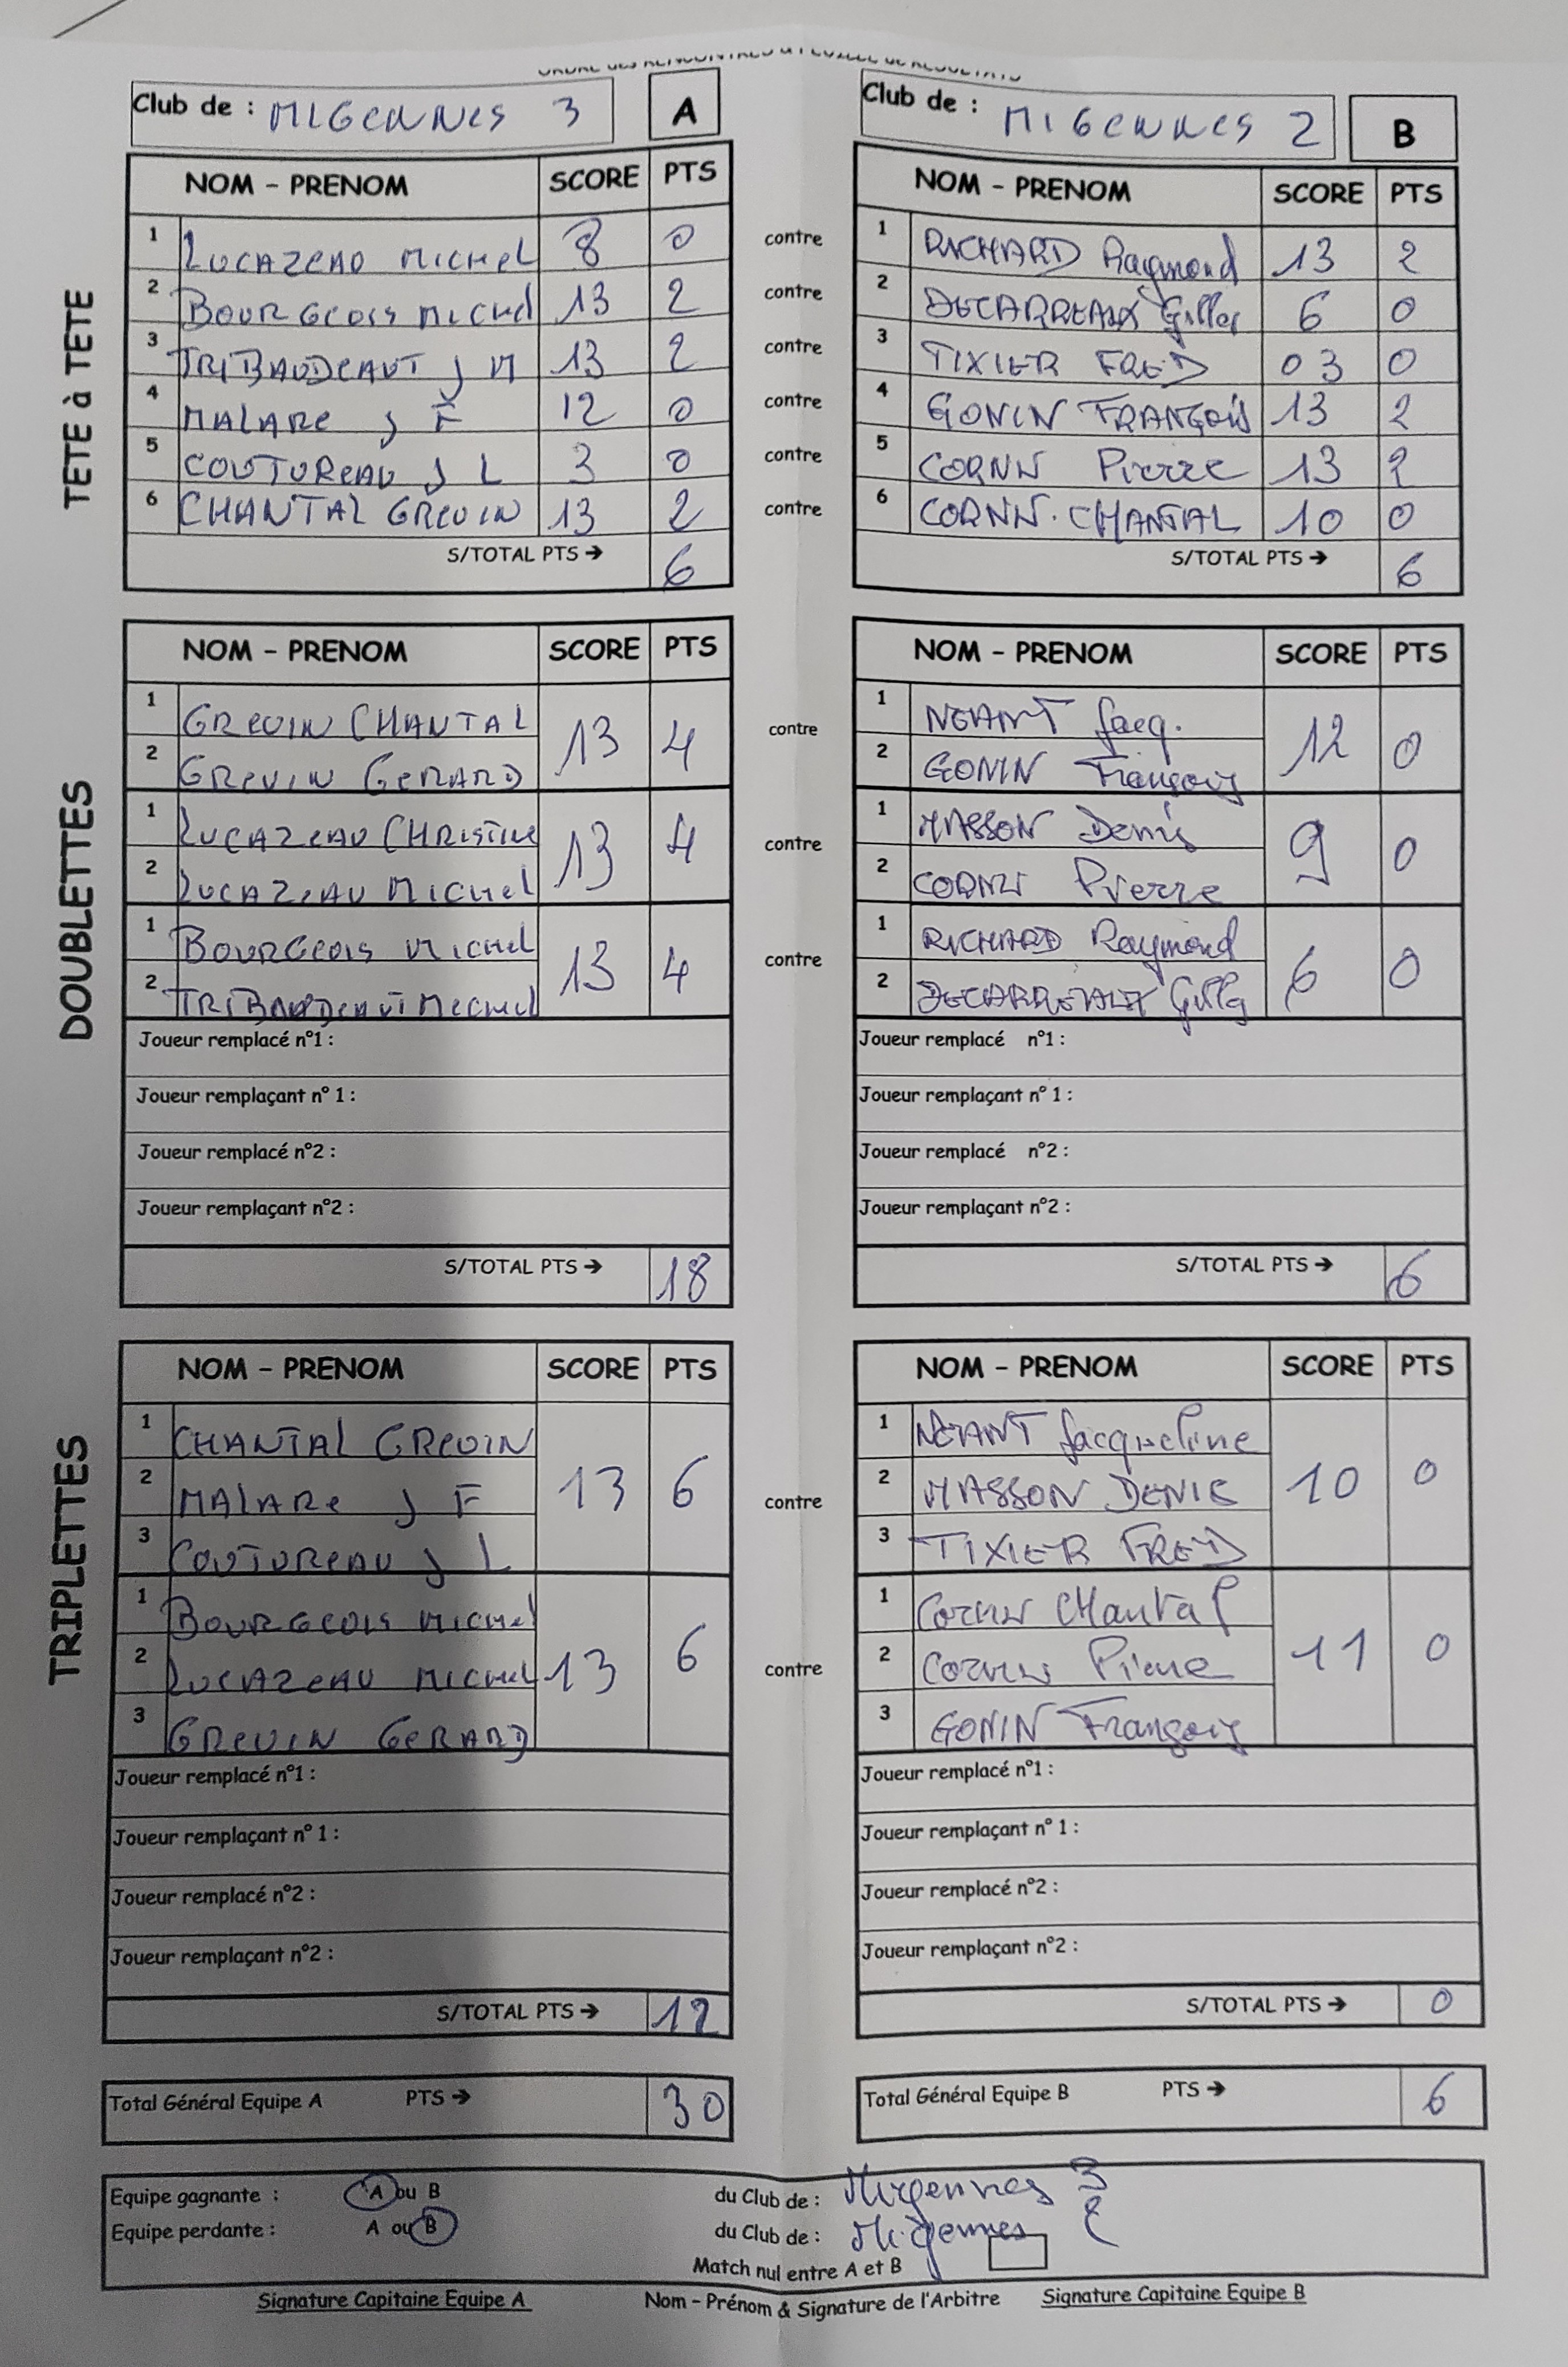 ORDRE des RENCONTRES & FEUILLE de RESULTATS
Club de : MIGENNES 3 A
Club de : MIGENNES 2 B
TETE à TETE
NOM - PRENOM SCORE PTS NOM - PRENOM SCORE PTS
1 LUCAZEAU MICHEL 8 0 contre 1 RICHARD Raymond 13 2
2 BOURGEOIS MICHEL 13 2 contre 2 DECARREAUX Gilles 6 0
3 TRIBAUDEAUT J M 13 2 contre 3 TIXIER FRED 03 0
4 MALARE J F 12 0 contre 4 GONIN FRANÇOIS 13 2
5 COUTUREAU J L 3 0 contre 5 CORNU Pierre 13 2
6 CHANTAL GREVIN 13 2 contre 6 CORNU. CHANTAL 10 0
S/TOTAL PTS → 6 S/TOTAL PTS → 6
DOUBLETTES
NOM - PRENOM SCORE PTS NOM - PRENOM SCORE PTS
1 GREVIN CHANTAL 13 4 contre 1 NEANT Jacq. 12 0
2 GREVIN GERARD 2 GONIN François
1 LUCAZEAU CHRISTINE 13 4 contre 1 MASSON Denis 9 0
2 LUCAZEAU MICHEL 2 CORNU Pierre
1 BOURGEOIS MICHEL 13 4 contre 1 RICHARD Raymond 6 0
2 TRIBAUDEAUT MICHEL 2 DECARREAUX Gilles
Joueur remplacé n°1 : Joueur remplacé n°1 :
Joueur remplaçant n° 1 : Joueur remplaçant n° 1 :
Joueur remplacé n°2 : Joueur remplacé n°2 :
Joueur remplaçant n°2 : Joueur remplaçant n°2 :
S/TOTAL PTS → 18 S/TOTAL PTS → 6
TRIPLETTES
NOM - PRENOM SCORE PTS NOM - PRENOM SCORE PTS
1 CHANTAL GREVIN 1 NEANT Jacqueline
2 MALARE J F 13 6 contre 2 MASSON DENIS 10 0
3 COUTUREAU J L 3 TIXIER FRED
1 BOURGEOIS MICHEL 1 Cornu CHantal
2 LUCAZEAU MICHEL 13 6 contre 2 Cornu Pierre 11 0
3 GREVIN GERARD 3 GONIN François
Joueur remplacé n°1 : Joueur remplacé n°1 :
Joueur remplaçant n° 1 : Joueur remplaçant n° 1 :
Joueur remplacé n°2 : Joueur remplacé n°2 :
Joueur remplaçant n°2 : Joueur remplaçant n°2 :
S/TOTAL PTS → 12 S/TOTAL PTS → 0
Total Général Equipe A PTS → 30 Total Général Equipe B PTS → 6
Equipe gagnante : A ou B du Club de : Migennes 3
Equipe perdante : A ou B du Club de : Migennes 2
Match nul entre A et B
Signature Capitaine Equipe A Nom - Prénom & Signature de l'Arbitre Signature Capitaine Equipe B